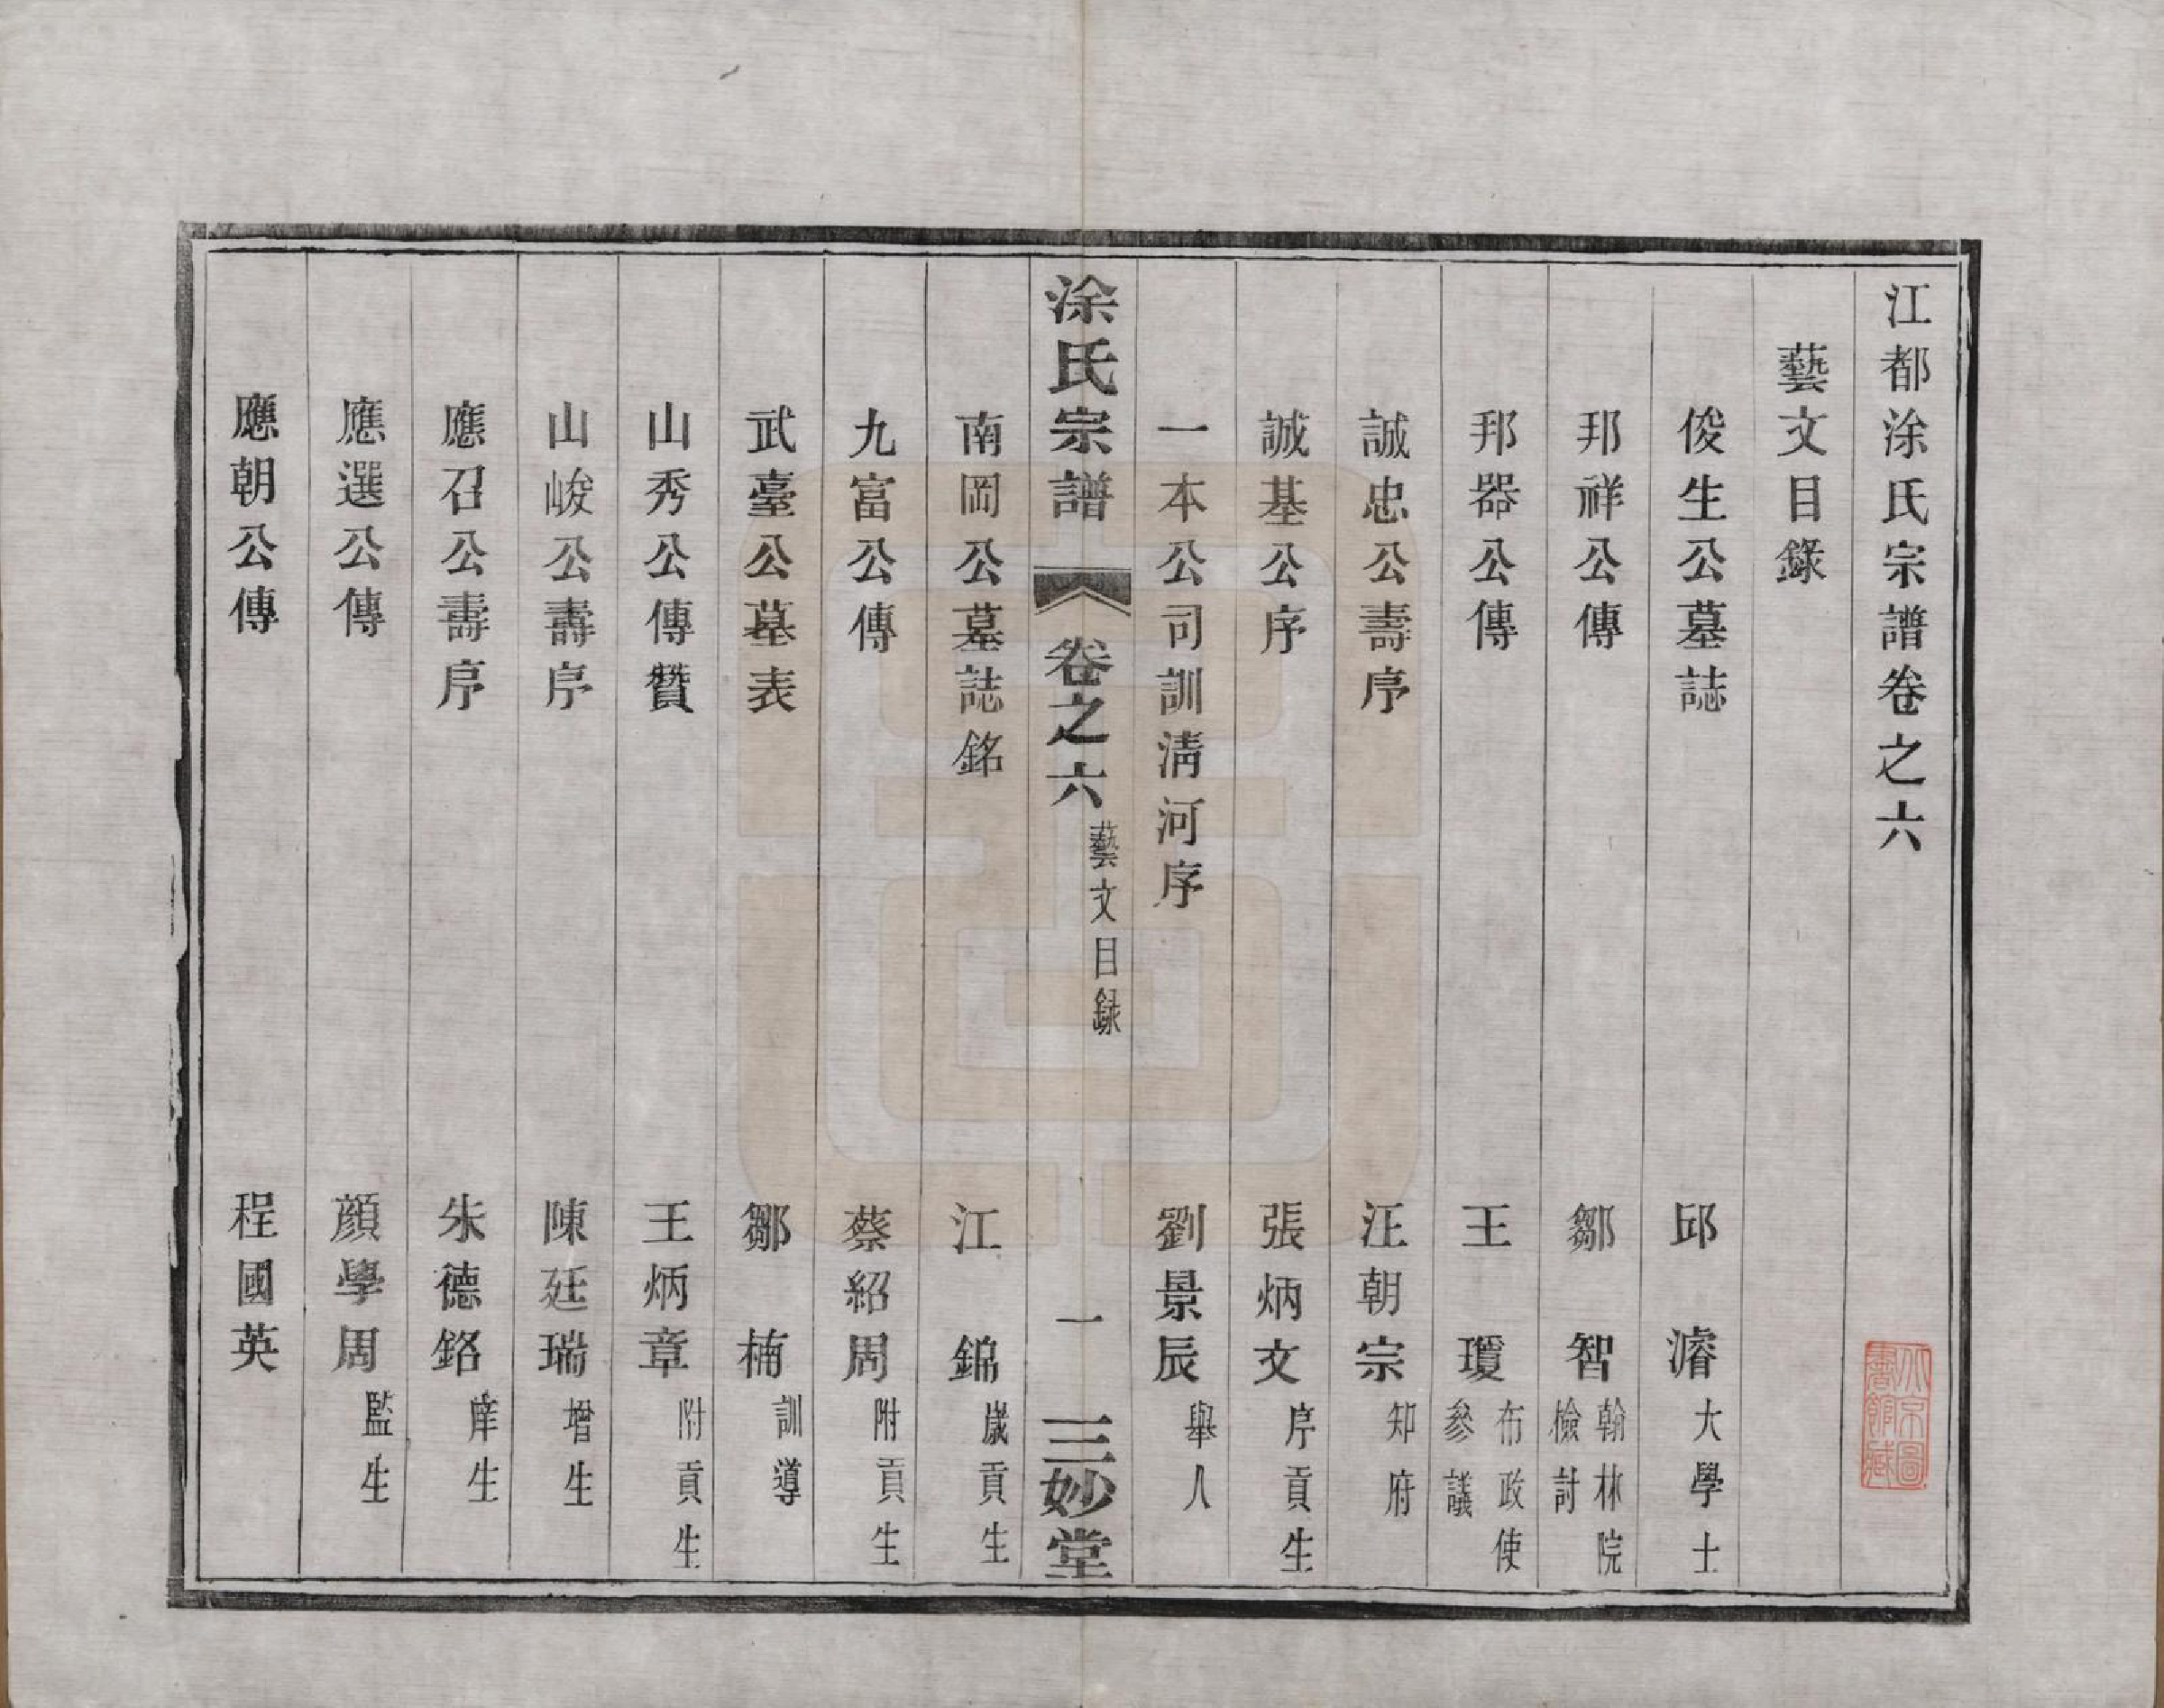 江都涂氏宗譜卷之六
藝文目錄
俊生公墓誌 邱濬 大學士
邦祥公傳 鄒智 翰林院檢討
邦器公傳 王瓊 布政使參議
誠忠公壽序 汪朝宗 知府
誠基公序 張炳文 序貢生
一本公司訓淸河序 劉景辰 舉人
涂氏宗譜 卷之六 藝文目録 一 三妙堂
南岡公墓誌銘 江錦 歲貢生
九富公傳 蔡紹周 附貢生
武臺公墓表 鄒楠 訓導
山秀公傳贊 王炳章 附貢生
山峻公壽序 陳廷瑞 增生
應召公壽序 朱德銘 庠生
應選公傳 顔學周 監生
應朝公傳 程國英